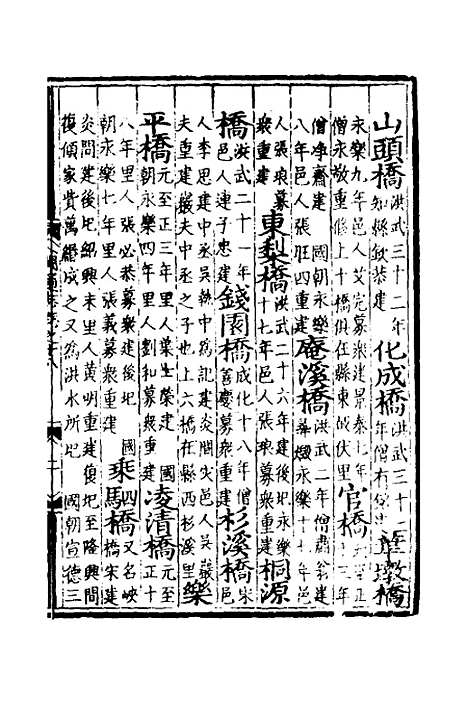 山頭橋洪武三十二年知縣敘恭建化成橋洪武三十二年僧有墩橋
永樂九年邑人艾完募衆建景泰七年邑僧永敬重修上十橋俱在縣東故伏里官橋元至正十三年
僧淨齋建 國朝永樂八年邑人張旺四重建庵溪橋洪武二年僧肅翁建燬永樂十七年邑
人張琅募衆重建東梨橋洪武二十六年建後圯永樂十七年邑人張琅募衆重建桐源
橋洪武二十一年邑人連子忠建錢園橋成化十八年僧善慶募衆建杉溪橋宋邑
人李思建中丞吳執中爲記建炎間邑人吳巖夫重建巖夫中丞之子也上六橋在縣西杉溪里樂
平橋元至正三年里人葉生榮建 國朝永樂四年里人劉和募衆重建凌清橋元至正十
八年里人張必恭募衆建後圯 國朝永樂七年里人張義募衆重建乘駟橋又名峽橋宋建
炎間建後圯紹興末里人黄明重建復圯至隆興間復傾家貲萬緡成之又爲洪水所圯 國朝宣德三